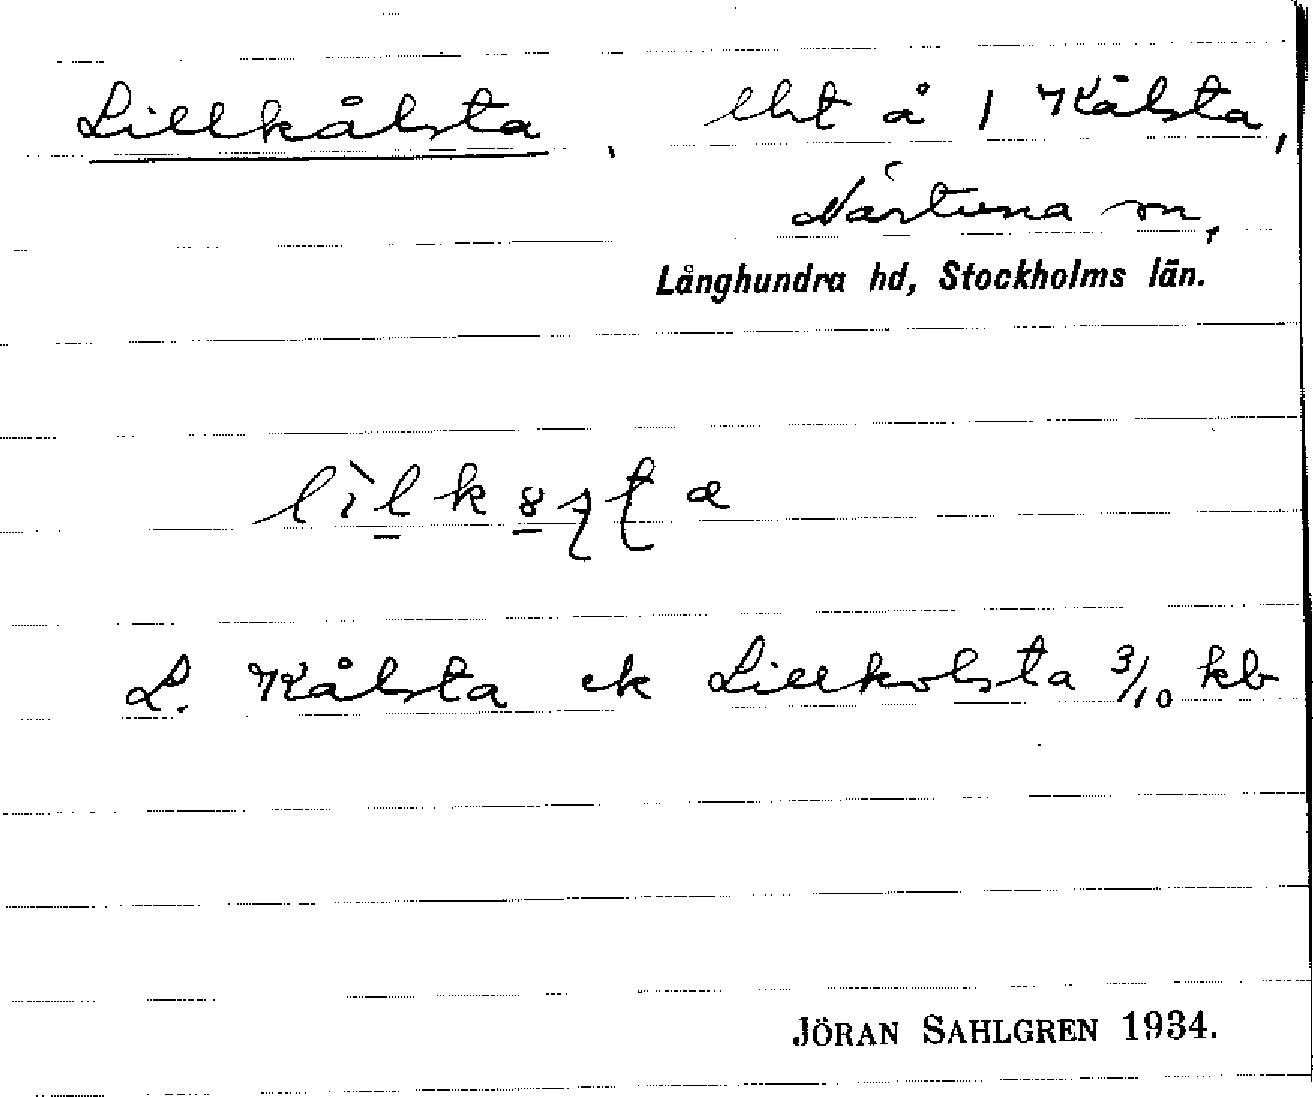 Lillkålsta, lht å 1 Kålsta,
Närtuna sn,
Långhundra hd, Stockholms län.
L. Kålsta ek Lillkolsta 3/10 kb
JÖRAN SAHLGREN 1934.